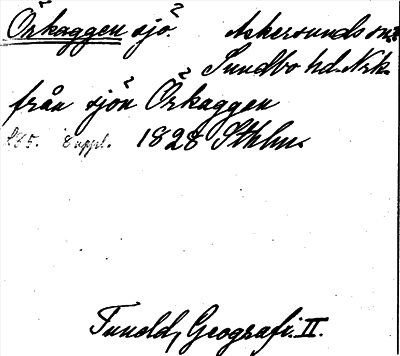 Örkaggen sjö. Askersunds sn.
Sundbo hd. Nrk.
från sjön Örkaggen
s. 65. 8 uppl. 1828 Sthlm.
Tuneld, Geografi. II.